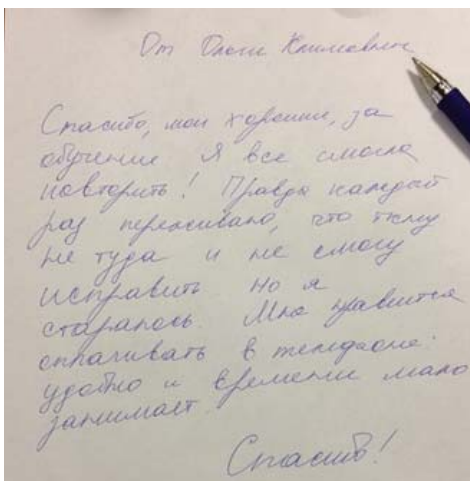 От Ольги Климович
Спасибо, мои хорошие, за
обучение Я все смогла
повторить! Правда каждый
раз переживаю, что ткну
не туда и не смогу
исправить но я
стараюсь. Мне нравится
оплачивать в телефоне:
удобно и времени мало
занимает.
Спасибо!